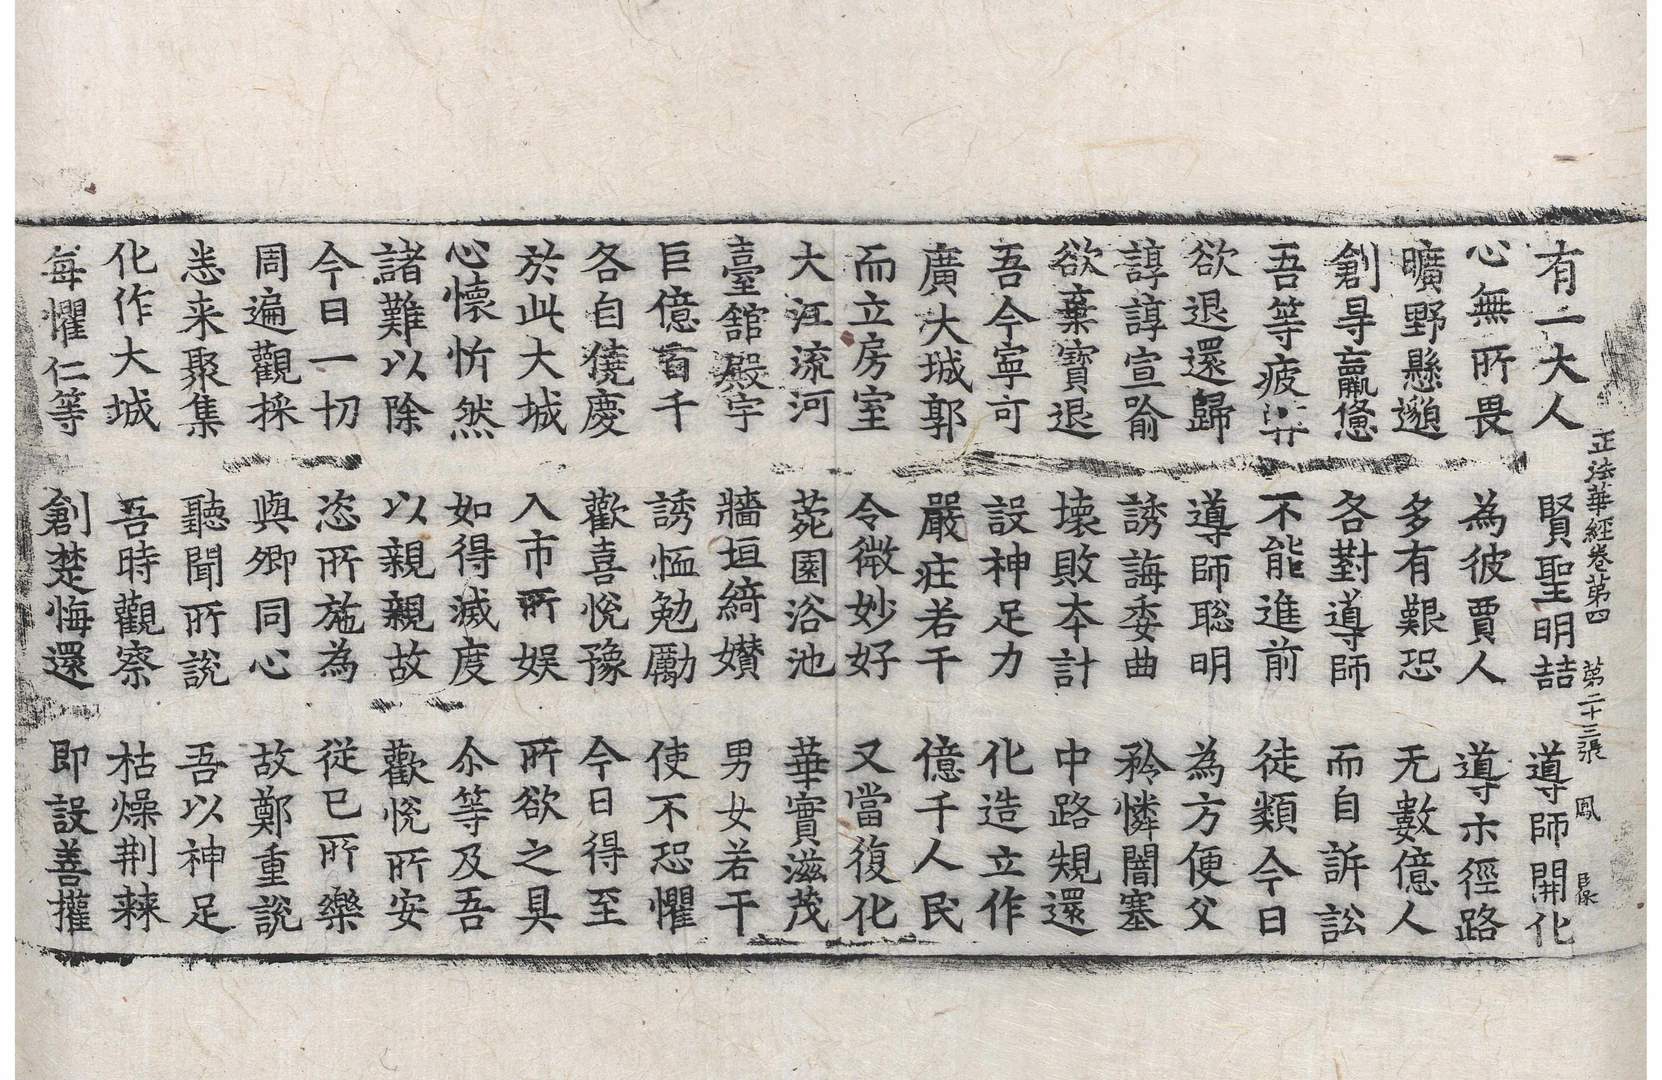 正法華經卷第四 第二十三張 鳳
有一大人 賢聖明喆 導師開化
心無所畏 為彼賈人 導示徑路
曠野懸邈 多有艱恐 无數億人
創㝵羸憊 各對導師 而自訴訟
吾等疲弊 不能進前 徒類今日
欲退還歸 導師聡明 為方便父
諄諄宣喻 誘誨委曲 矜憐闇塞
欲棄寶退 壊敗夲計 中路規還
吾今寧可 設神足力 化造立作
廣大城郭 嚴庄若干 億千人民
而立房室 令微妙好 又當復化
大江流河 菀園浴池 華實滋茂
臺舘殿宇 牆垣綺㜺 男女若干
巨億百千 誘恤勉勵 使不恐懼
各自僥慶 歡喜悅豫 今日得至
於此大城 入市所娱 所欲之具
心懷忻然 如得滅度 尒等及吾
諸難以除 以親親故 歡悅所安
今日一切 恣所施為 從已所樂
周遍觀採 與卿同心 故鄭重說
悉来聚集 聽聞所說 吾以神足
化作大城 吾時觀察 枯燥荆棘
每懼仁等 創楚悔還 即設善權